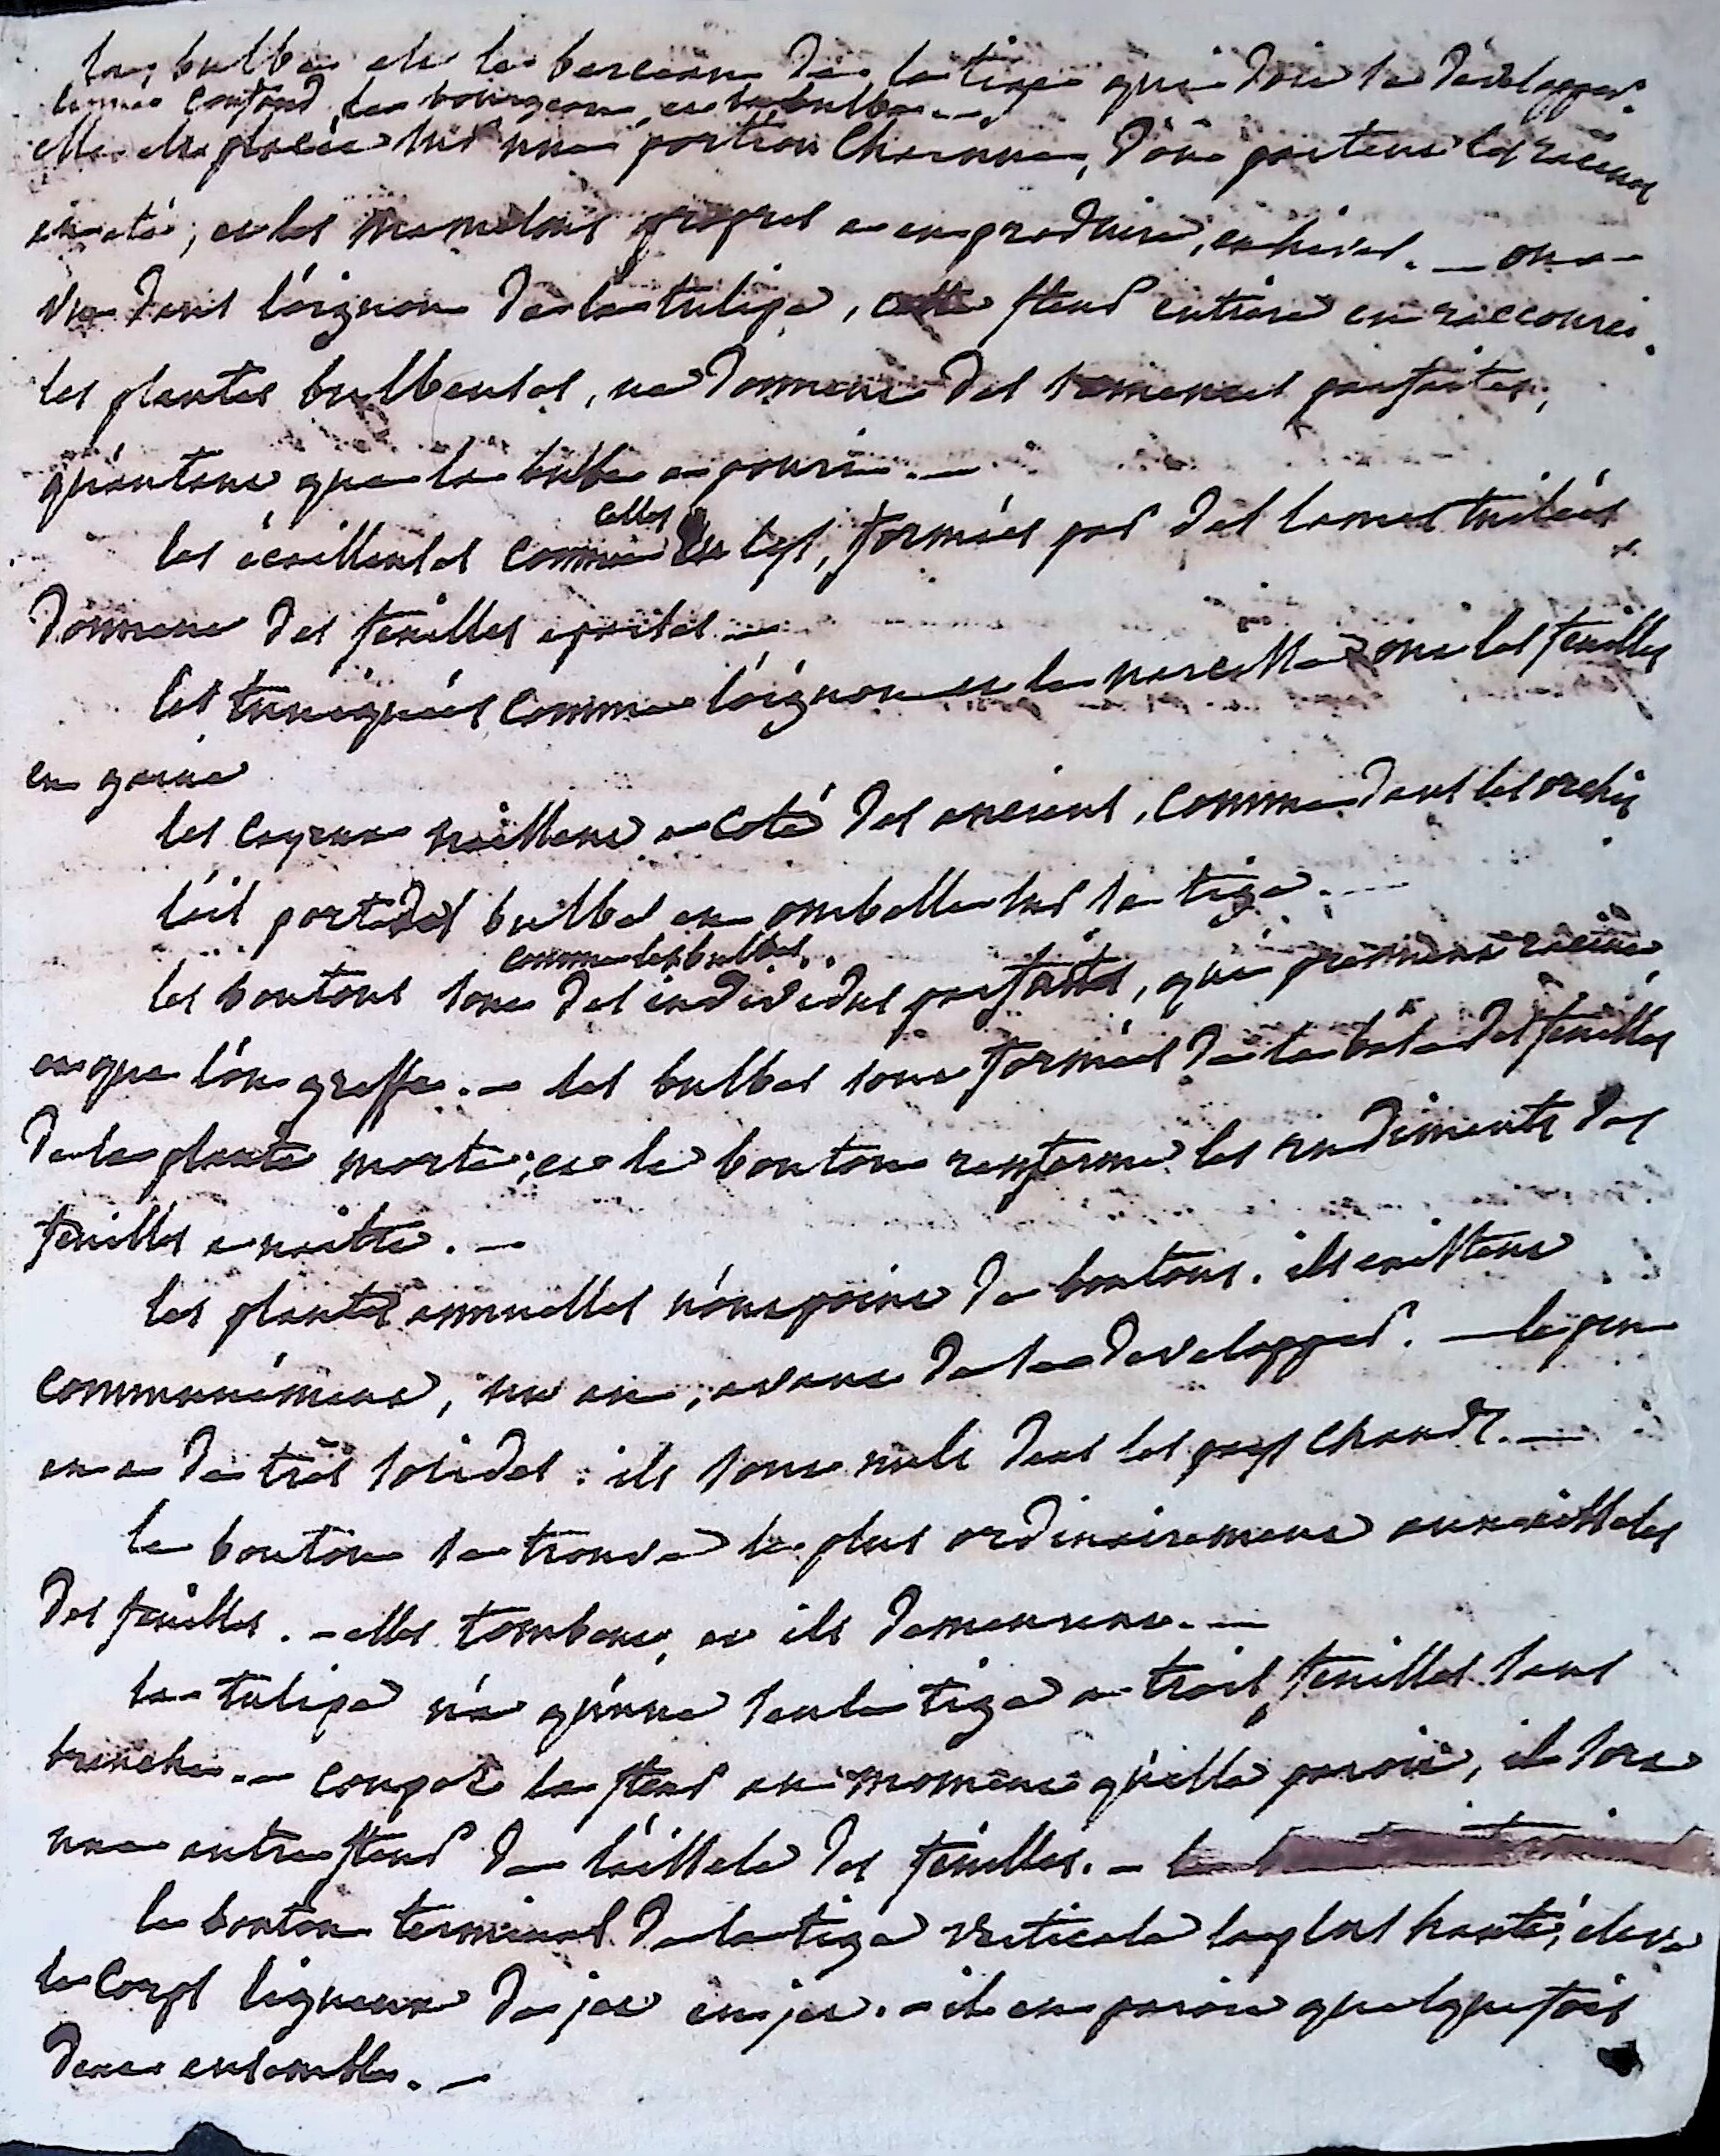 la bulbe est le berceau de la tige qui doit se développer.
confond le bourgeon et la bulbe...
elle est placée sur une portion charnue, d'où partent les racines
en été, et les mamelons propres a en produire, en hiver. — on a
vu dans l'oignon de la tulipe, cette fleur entière en raccourci.
les plantes bulbeuses, ne donnent des semences parfaites,
qu'autant que la bulbe a pouri. —
celles
les écailleuses comme du lys, formées par des lames tuilées,
donnent des feuilles eparses —
les tuniquées comme l'oignon et le narcisse ont les feuilles
en gaine
les cayeux naissent a coté des anciens, comme dans les orchis
l'ail porte des bulbes en ombelle sur sa tige. —
comme les bulbes
les boutons sont des individus parfaits, qui prennent racine
et que l'on greffe. — les bulbes sont formées de la base des feuilles
de la plante morte; et le bouton renferme les rudiments des
feuilles a naitre. —
les plantes annuelles n'ont point de boutons. ils existent
communément, un an, avant de se developper. — le pin
en a de très solides: ils sont nuls dans les pays chauds. —
le bouton se trouve le plus ordinairement aux aisselles
des feuilles. — elles tombent, et ils demeurent. —
la tulipe n'a qu'une seule tige a trois feuilles sans
branche. — coupez la fleur au moment qu'elle paroit, il sort
une autre fleur de l'aisselle des feuilles. —
le bouton terminal de la tige verticale la plus haute, eleve
le corps ligneux de jet en jet. — il en paroit quelquefois
deux ensemble. —